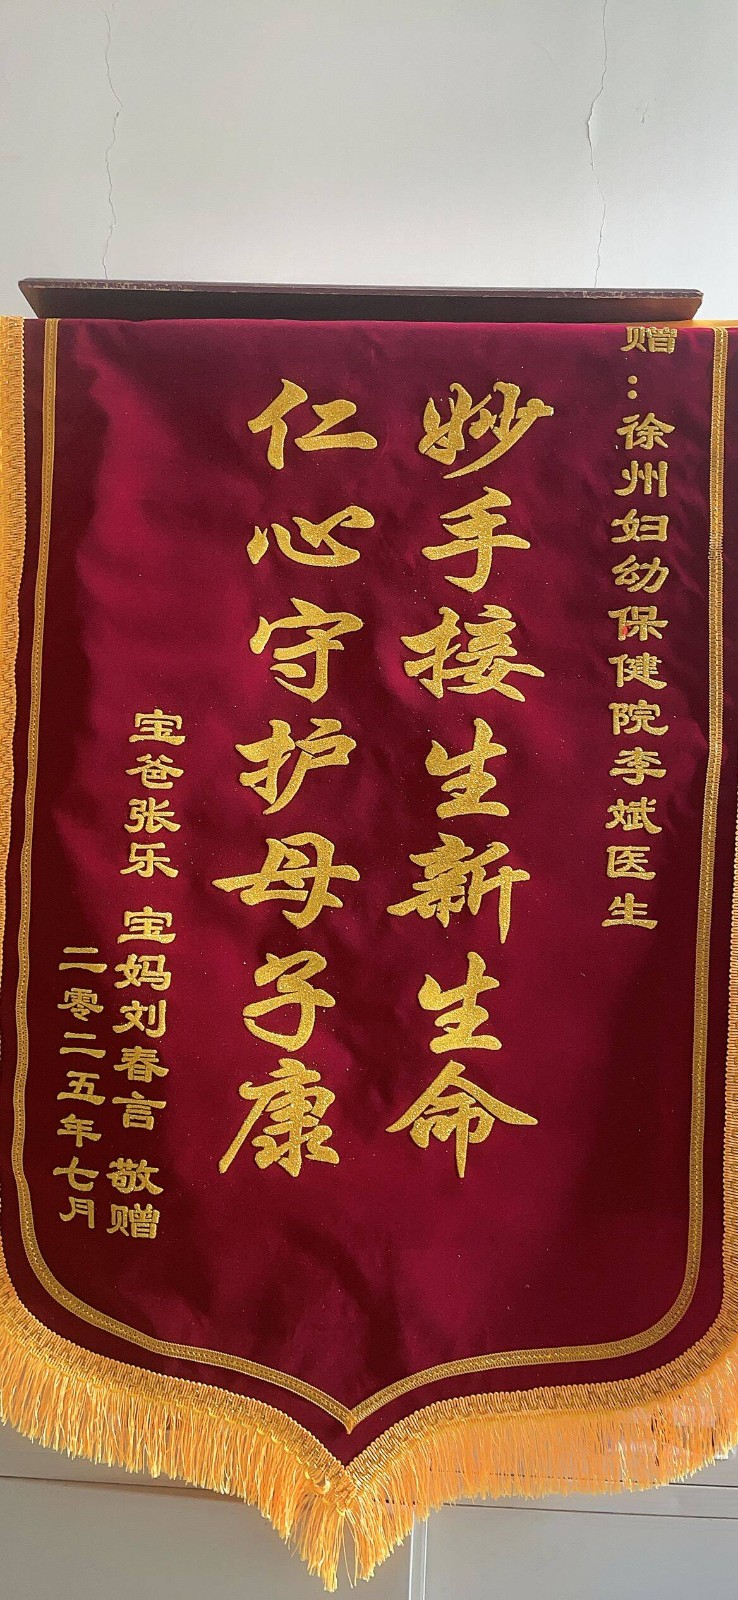 赠：徐州妇幼保健院李斌医生
妙手接生新生命
仁心守护母子康
宝爸张乐 宝妈刘春言 敬赠
二零二五年七月